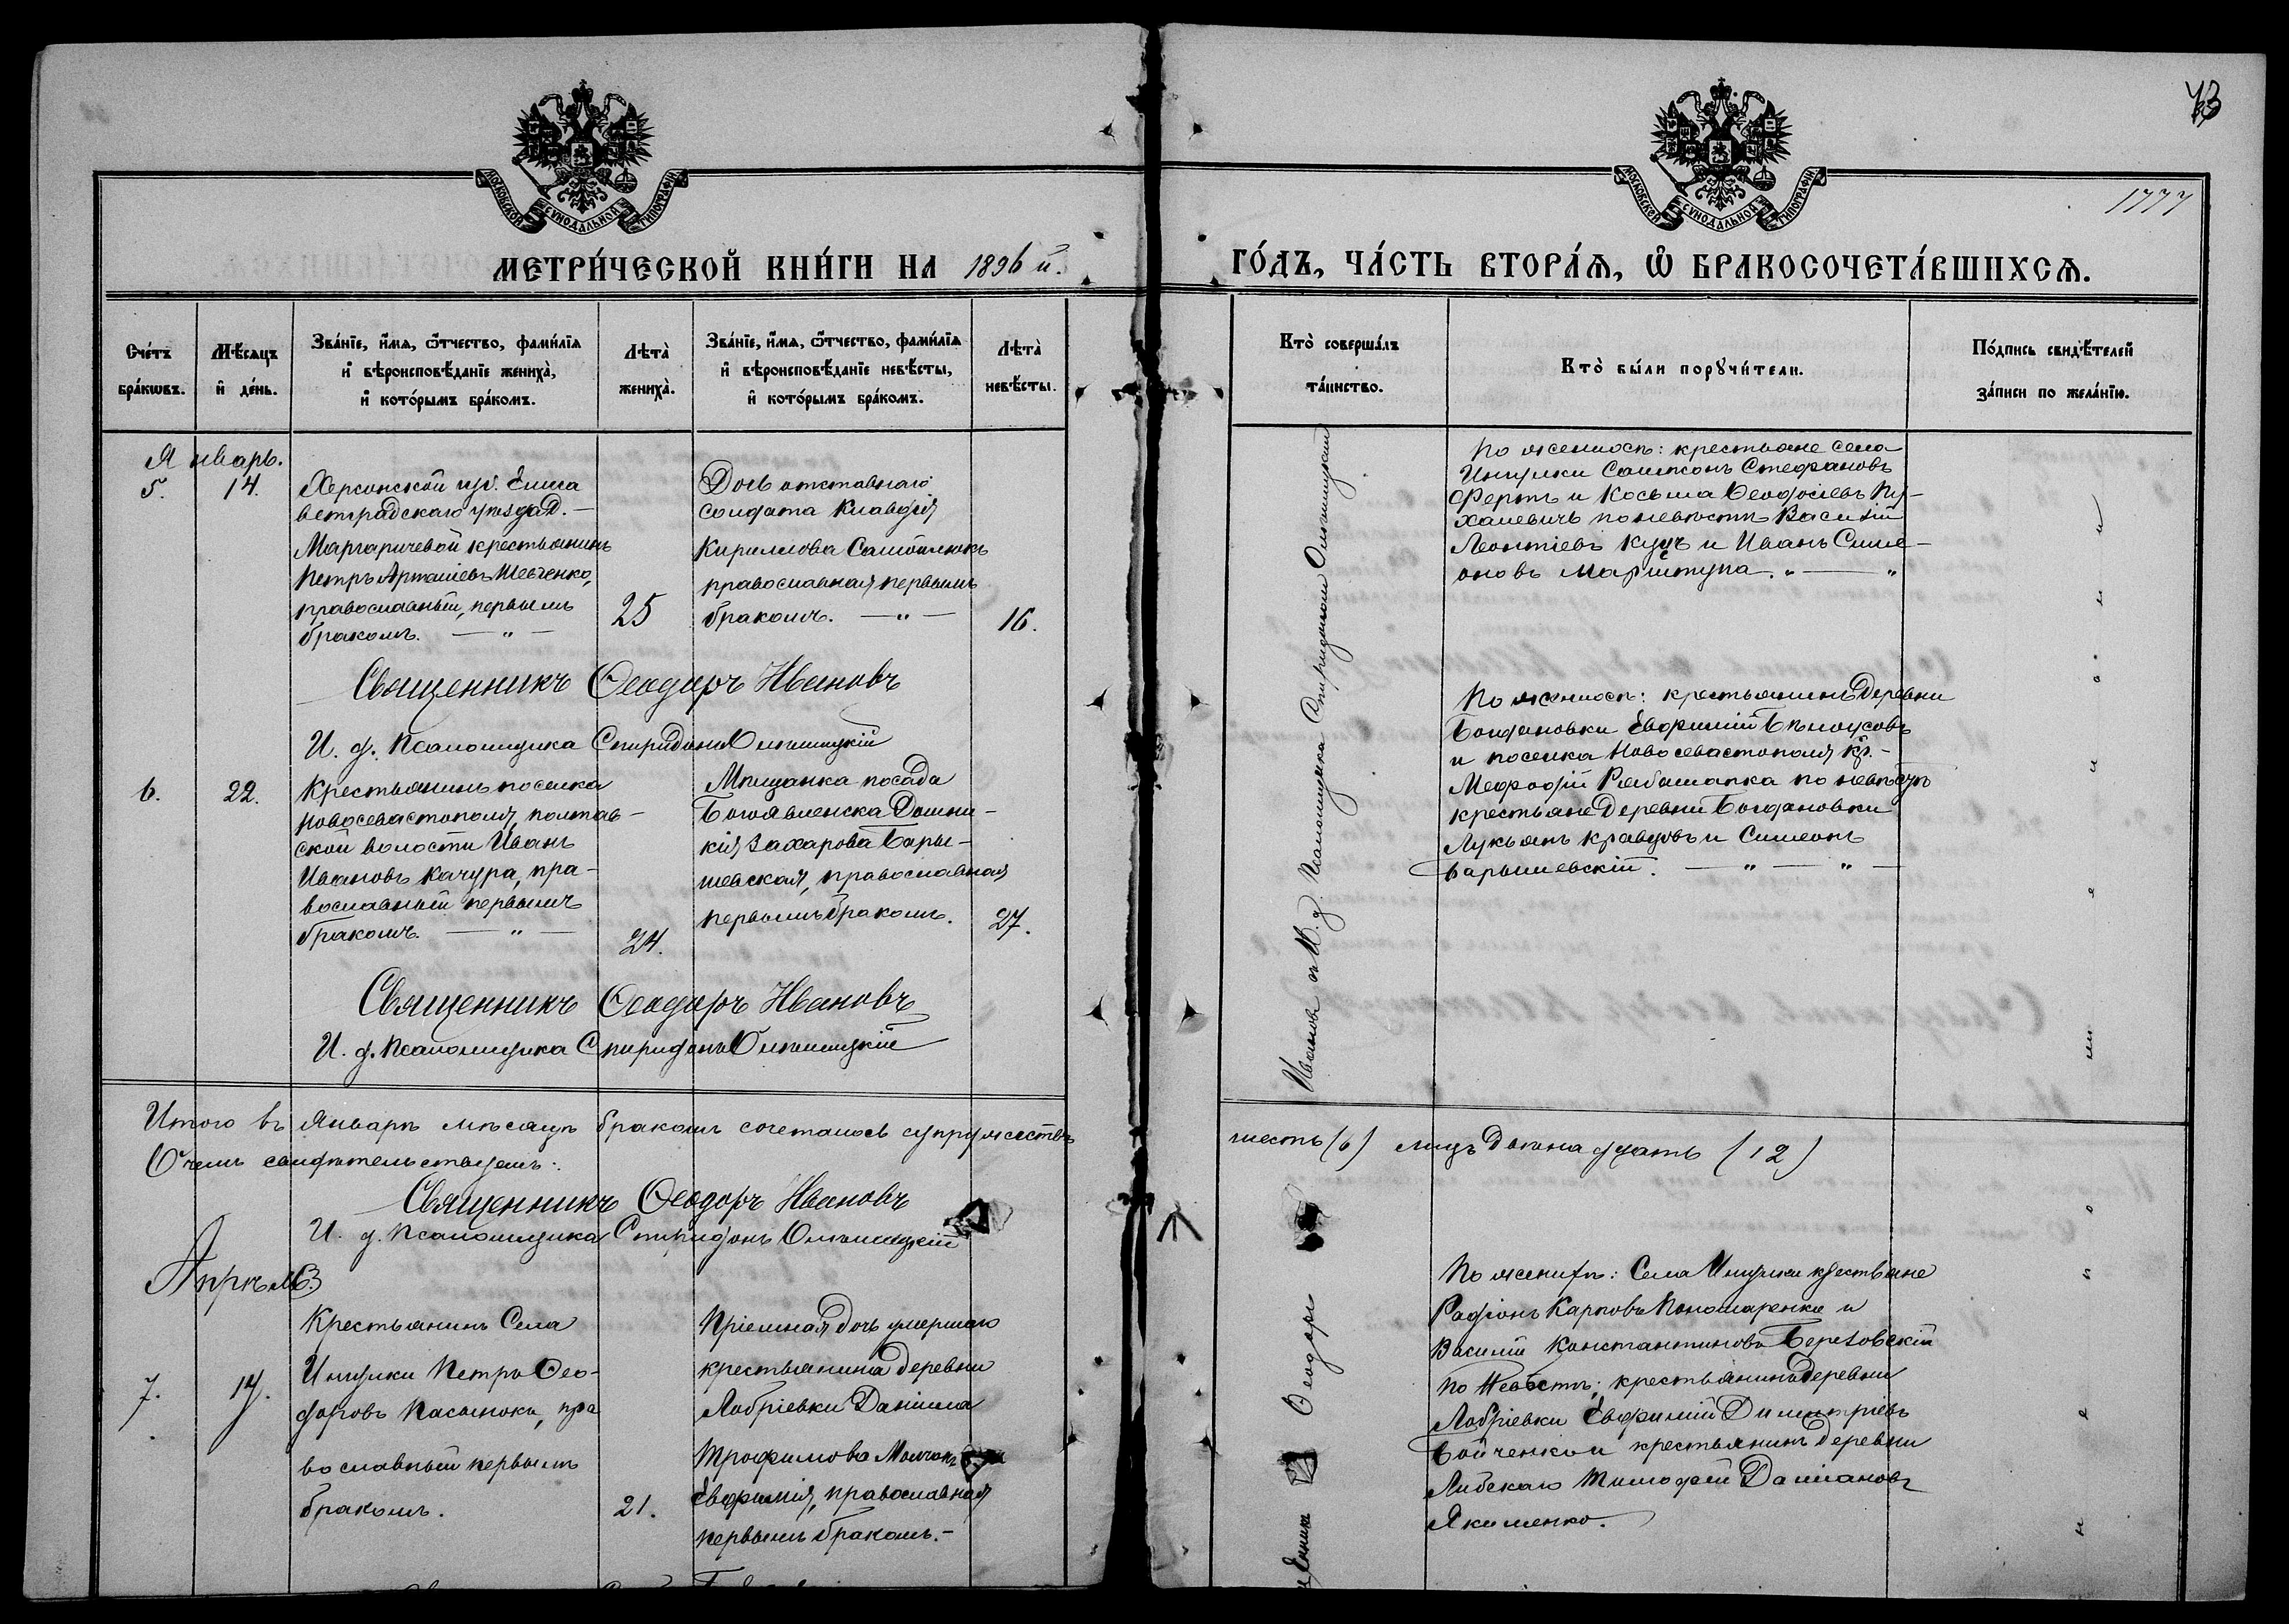 73
1777
МОСКОВСКОЙ СѴНОДАЛЬНОЙ ТИПОГРАФІИ
МОСКОВСКОЙ СѴНОДАЛЬНОЙ ТИПОГРАФІИ
МЕТРИ́ЧЕСКОЙ КНИ́ГИ НА 1896 й.
ГО́ДЪ, ЧА́СТЬ ВТОРА́Ѧ, Ѽ БРАКОСОЧЕТА́ВШИХСѦ.
Сче́тъ
бра́кѡвъ.
Мѣ́сѧцъ
и҆ де́нь.
Зва́нїе, и҆́мѧ, ѻ҆́тчество, фами́лїѧ
и҆ вѣроисповѣ́данїе жениха̀,
и҆ кото́рымъ бра́комъ.
Лѣта̀
жениха̀.
Зва́нїе, и҆́мѧ, ѻ҆́тчество, фами́лїѧ
и҆ вѣроисповѣ́данїе невѣ́сты,
и҆ кото́рымъ бра́комъ.
Лѣта̀
невѣ́сты.
Кто̀ соверша́лъ
та́инство.
Кто̀ бы́ли порꙋчи́тели.
По́дпись свидѣ́телей
за́писи по жела́нїю.
Январь.
5.
14.
Херсонской губ. Елиса
ветградскаго уѣзда д. —
Маргаричевой крестьянинъ
Петръ Шевченко,
православный, первымъ
бракомъ. — „ —
25
Дочь отставнаго
солдата Клавдія
Кириллова Самойлюкъ
православная первымъ
бракомъ. — „ —
16.
По женихѣ: крестьяне села
Ингулки Сампсонъ Стефановъ
Фертъ и Косьма Ѳеодосіевъ Пу-
халевичъ по невѣстѣ Василій
Леонтіевъ Куцъ и Иванъ Симе-
оновъ . „ — „
Священникъ Ѳеодоръ Ивановъ
И. д. Псаломщика Спиридонъ
6.
22.
Крестьянинъ поселка
Новосевастополя, полтав-
ской волости Иванъ
Ивановъ Качура, пра-
вославный первымъ
бракомъ. — „ —
24.
Мѣщанка посада
Богоявленска Домни-
кія Захарова Бары-
шевская, православная
первымъ бракомъ.
27.
По женихѣ: крестьянинъ деревни
Богдановки Евфимій Бѣлоусовъ
и поселка Новосевастополя кр.-
Мефодій Рябошапка по невѣстѣ
крестьяне деревни Богдановки
Лукьянъ Кравцовъ и Симеонъ
Барышевскій. — „ — „ —
Священникъ Ѳеодоръ Ивановъ
И. д. Псаломщика Спиридонъ
Итого въ Январѣ мѣсяцѣ бракомъ сочеталось супружествъ
шесть (6) лицъ двѣнадцать (12)
О чемъ свидѣтельствуемъ:
Священникъ Ѳеодоръ Ивановъ
И. д. Псаломщика Спиридонъ
Апрѣль
7.
17.
Крестьянинъ Села
Ингулки Петръ Ѳео-
доровъ Пасынокъ, пра
вославный первымъ
бракомъ.
21.
Пріемная дочь умершаго
крестьянина деревни
Лабріевки Даніила
Трофимова
Евфимія, православная
первымъ бракомъ. -
По женихѣ: Села Ингулки крестьяне
Радіонъ Карповъ Пономаренко и
Василій Константиновъ Березовскій
По Невѣстѣ: крестьянинъ деревни
Лабріевки Евфимій Димитріевъ
Бойченко и крестьянинъ деревни
Тимофей Даміановъ
Якименко.
Ѳеодоръ
Ивановъ съ И. д. Псаломщика Спиридономъ